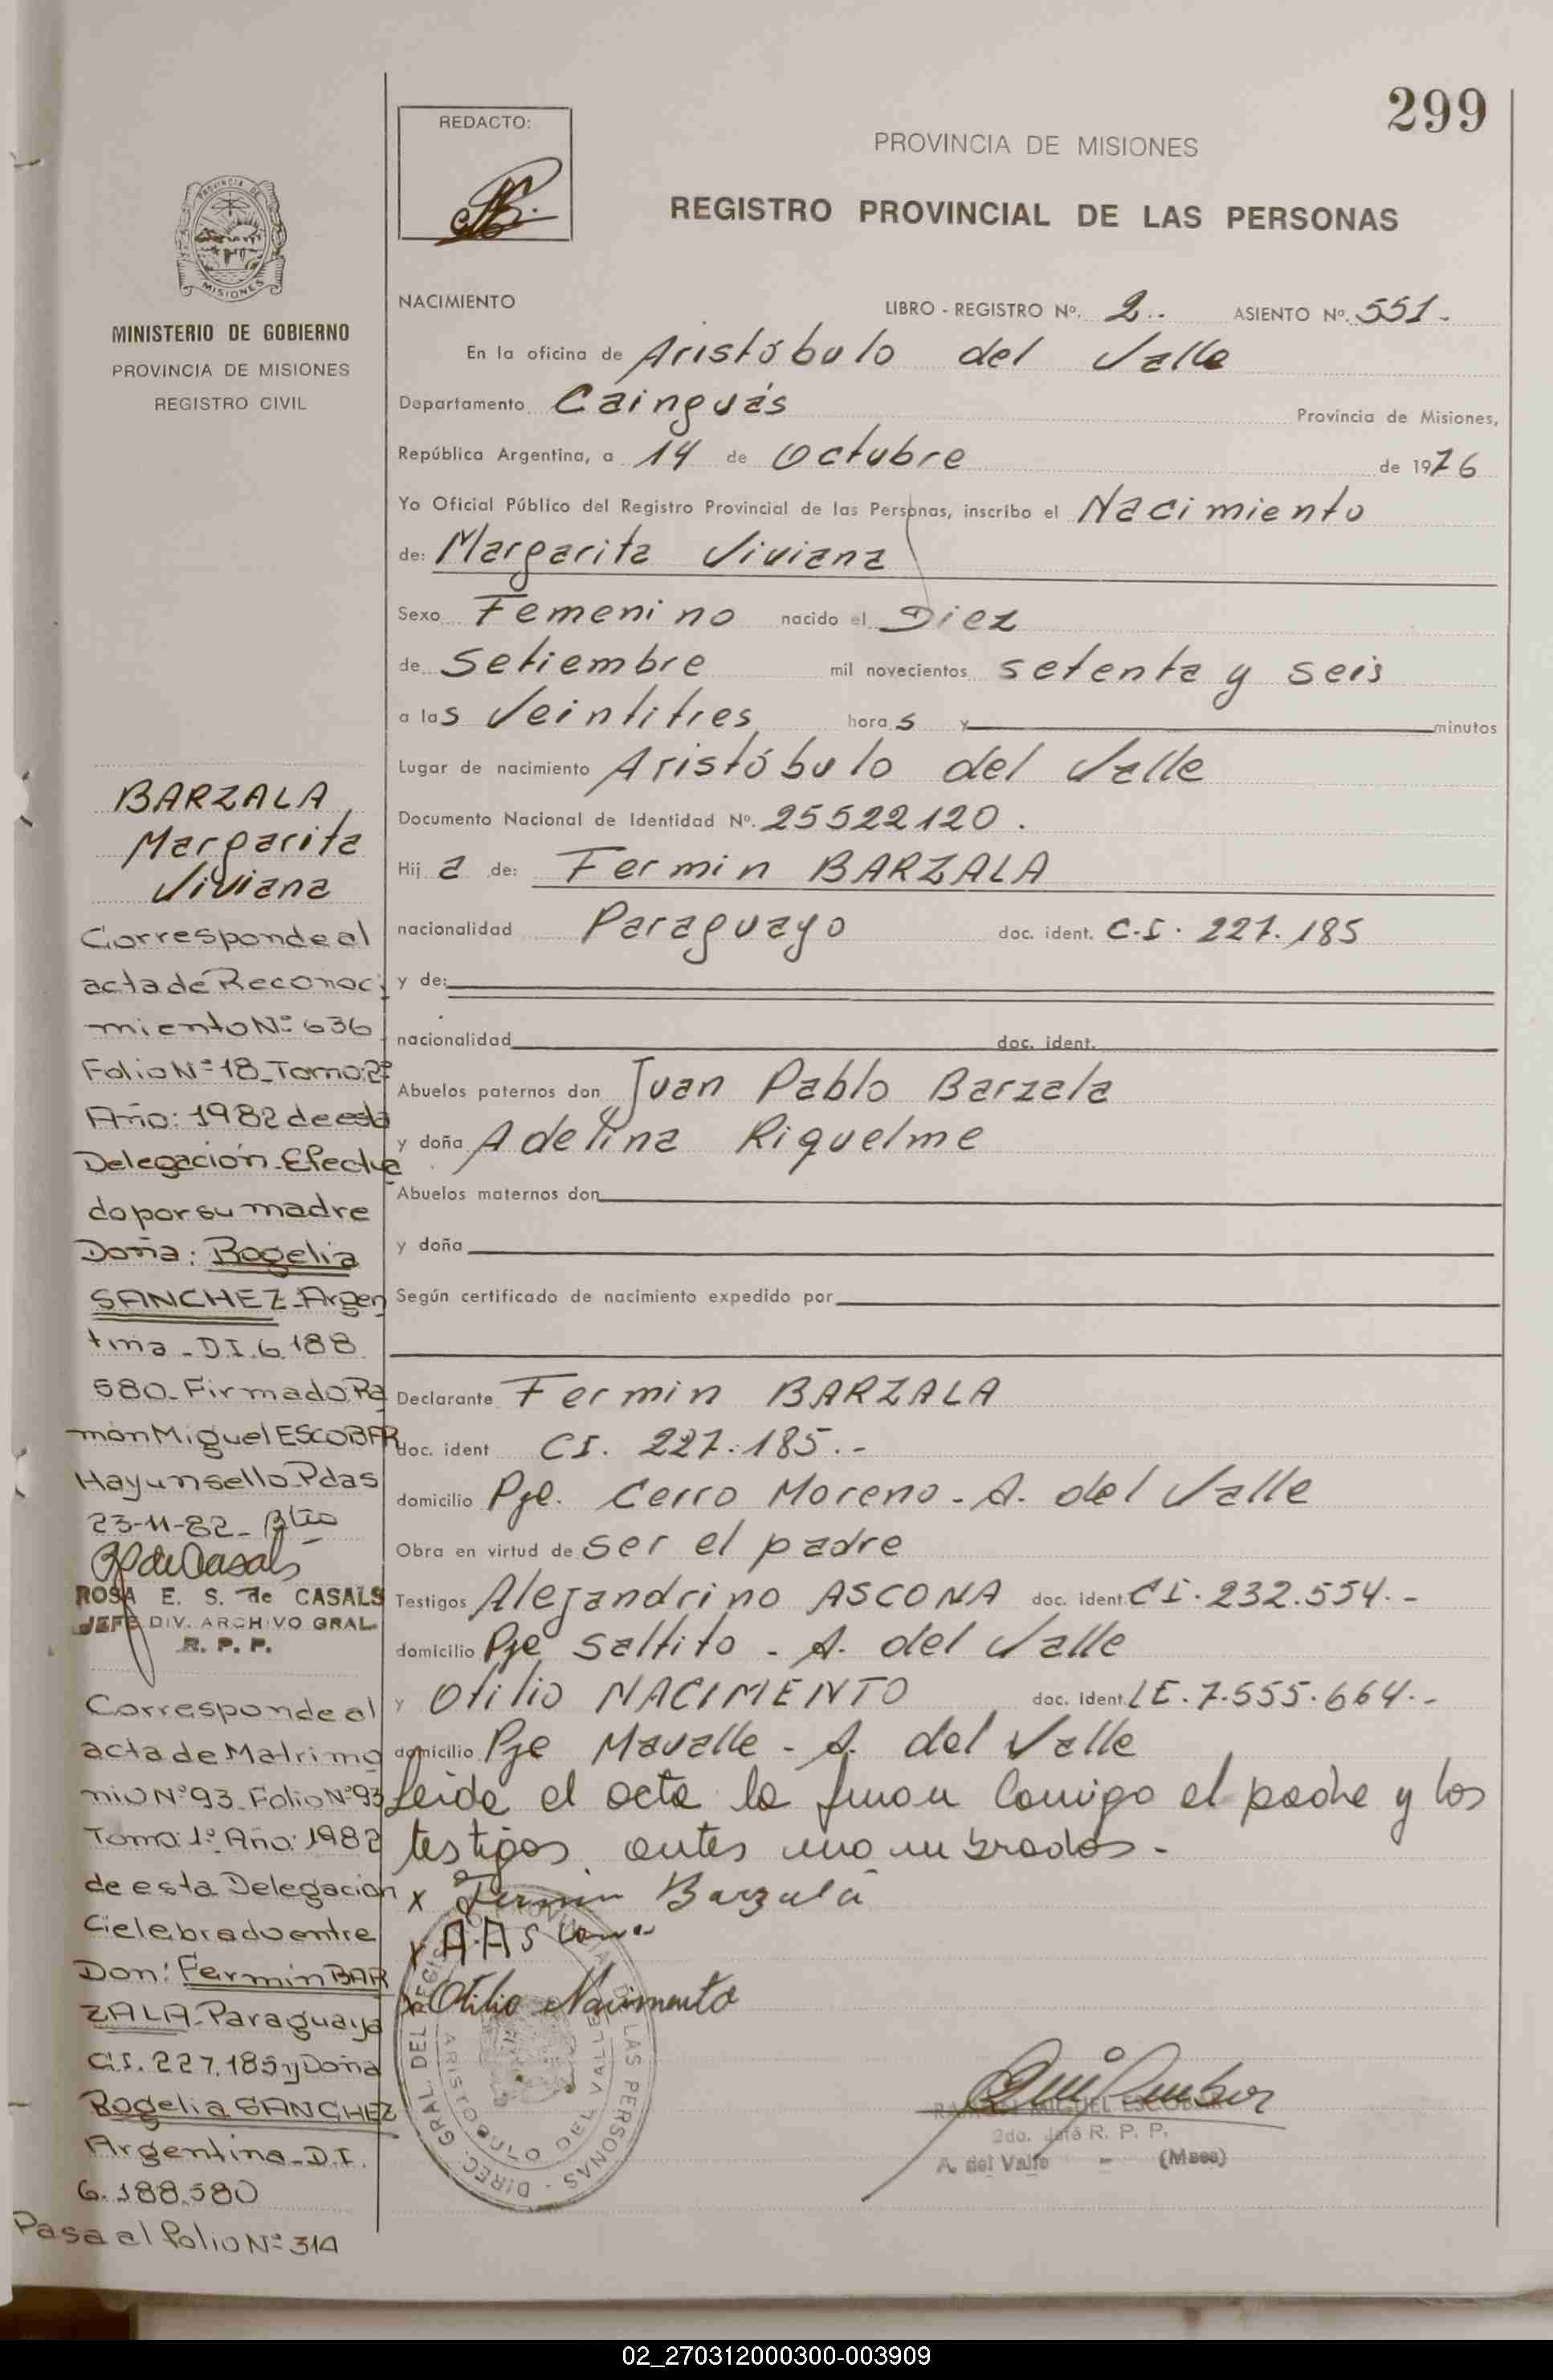 299
REDACTO:
PROVINCIA DE MISIONES
REGISTRO PROVINCIAL DE LAS PERSONAS
PROVINCIA DE
MISIONES
MINISTERIO DE GOBIERNO
PROVINCIA DE MISIONES
REGISTRO CIVIL
NACIMIENTO LIBRO - REGISTRO Nº. 2.. ASIENTO Nº. 551.-
En la oficina de Aristóbulo del Valle
Departamento Cainguás Provincia de Misiones,
República Argentina, a 14 de Octubre de 1976
Yo Oficial Público del Registro Provincial de las Personas, inscribo el Nacimiento
de: Margarita Viviana
Sexo Femenino nacido el Diez
de Setiembre mil novecientos setenta y seis
a las Veintitres horas y minutos
Lugar de nacimiento Aristóbulo del Valle
Documento Nacional de Identidad Nº. 25522120.
Hija de: Fermin BARZALA
nacionalidad Paraguayo doc. ident. C.I. 227.185
y de:
nacionalidad doc. ident.
Abuelos paternos don Juan Pablo Barzala
y doña Adelina Riquelme
Abuelos maternos don
y doña
Según certificado de nacimiento expedido por
Declarante Fermin BARZALA
doc. ident CI. 227.185.-
domicilio Pje. Cerro Moreno - A. del Valle
Obra en virtud de ser el padre
Testigos Alejandrino ASCONA doc. ident. CI. 232.554.-
domicilio Pje Saltito - A. del Valle
y Otilio NACIMENTO doc. ident. LE. 7.555.664.-
domicilio Pje Mavalle - A. del Valle
Leida el acta la firman conmigo el padre y los
testigos antes nombrados.-
x Fermin Barzala
x A. As
x Otilio Nacimento
DIREC. GRAL. DEL REGISTRO PROVINCIAL DE LAS PERSONAS
ARISTOBULO DEL VALLE
RAMON MIGUEL ESCOBAR
2do. Jefe R. P. P.
A. del Valle - (Mnes)
BARZALA
Margarita
Viviana
Corresponde al
acta de Reconoci
miento Nº: 636
Folio Nº 18_Tomo: 2º
Año: 1982 de esta
Delegación_Efectua
do por su madre
Doña: Rogelia
SANCHEZ_Argen
tina_D.I. 6.188
580_Firmado Ra
món Miguel ESCOBAR
Hay un sello_Pdas
23-11-82_
ROSA E. S. de CASALS
JEFE DIV. ARCHIVO GRAL.
R. P. P.
Corresponde al
acta de Matrimo
nio Nº 93_Folio Nº 93
Tomo: 1º_Año: 1982
de esta Delegación
Celebrado entre
Don: Fermin BAR
ZALA_Paraguayo
C.I. 227.185 y Doña
Rogelia SANCHEZ
Argentina_D.I.
6.188.580
Pasa al folio Nº: 314
02_270312000300-003909